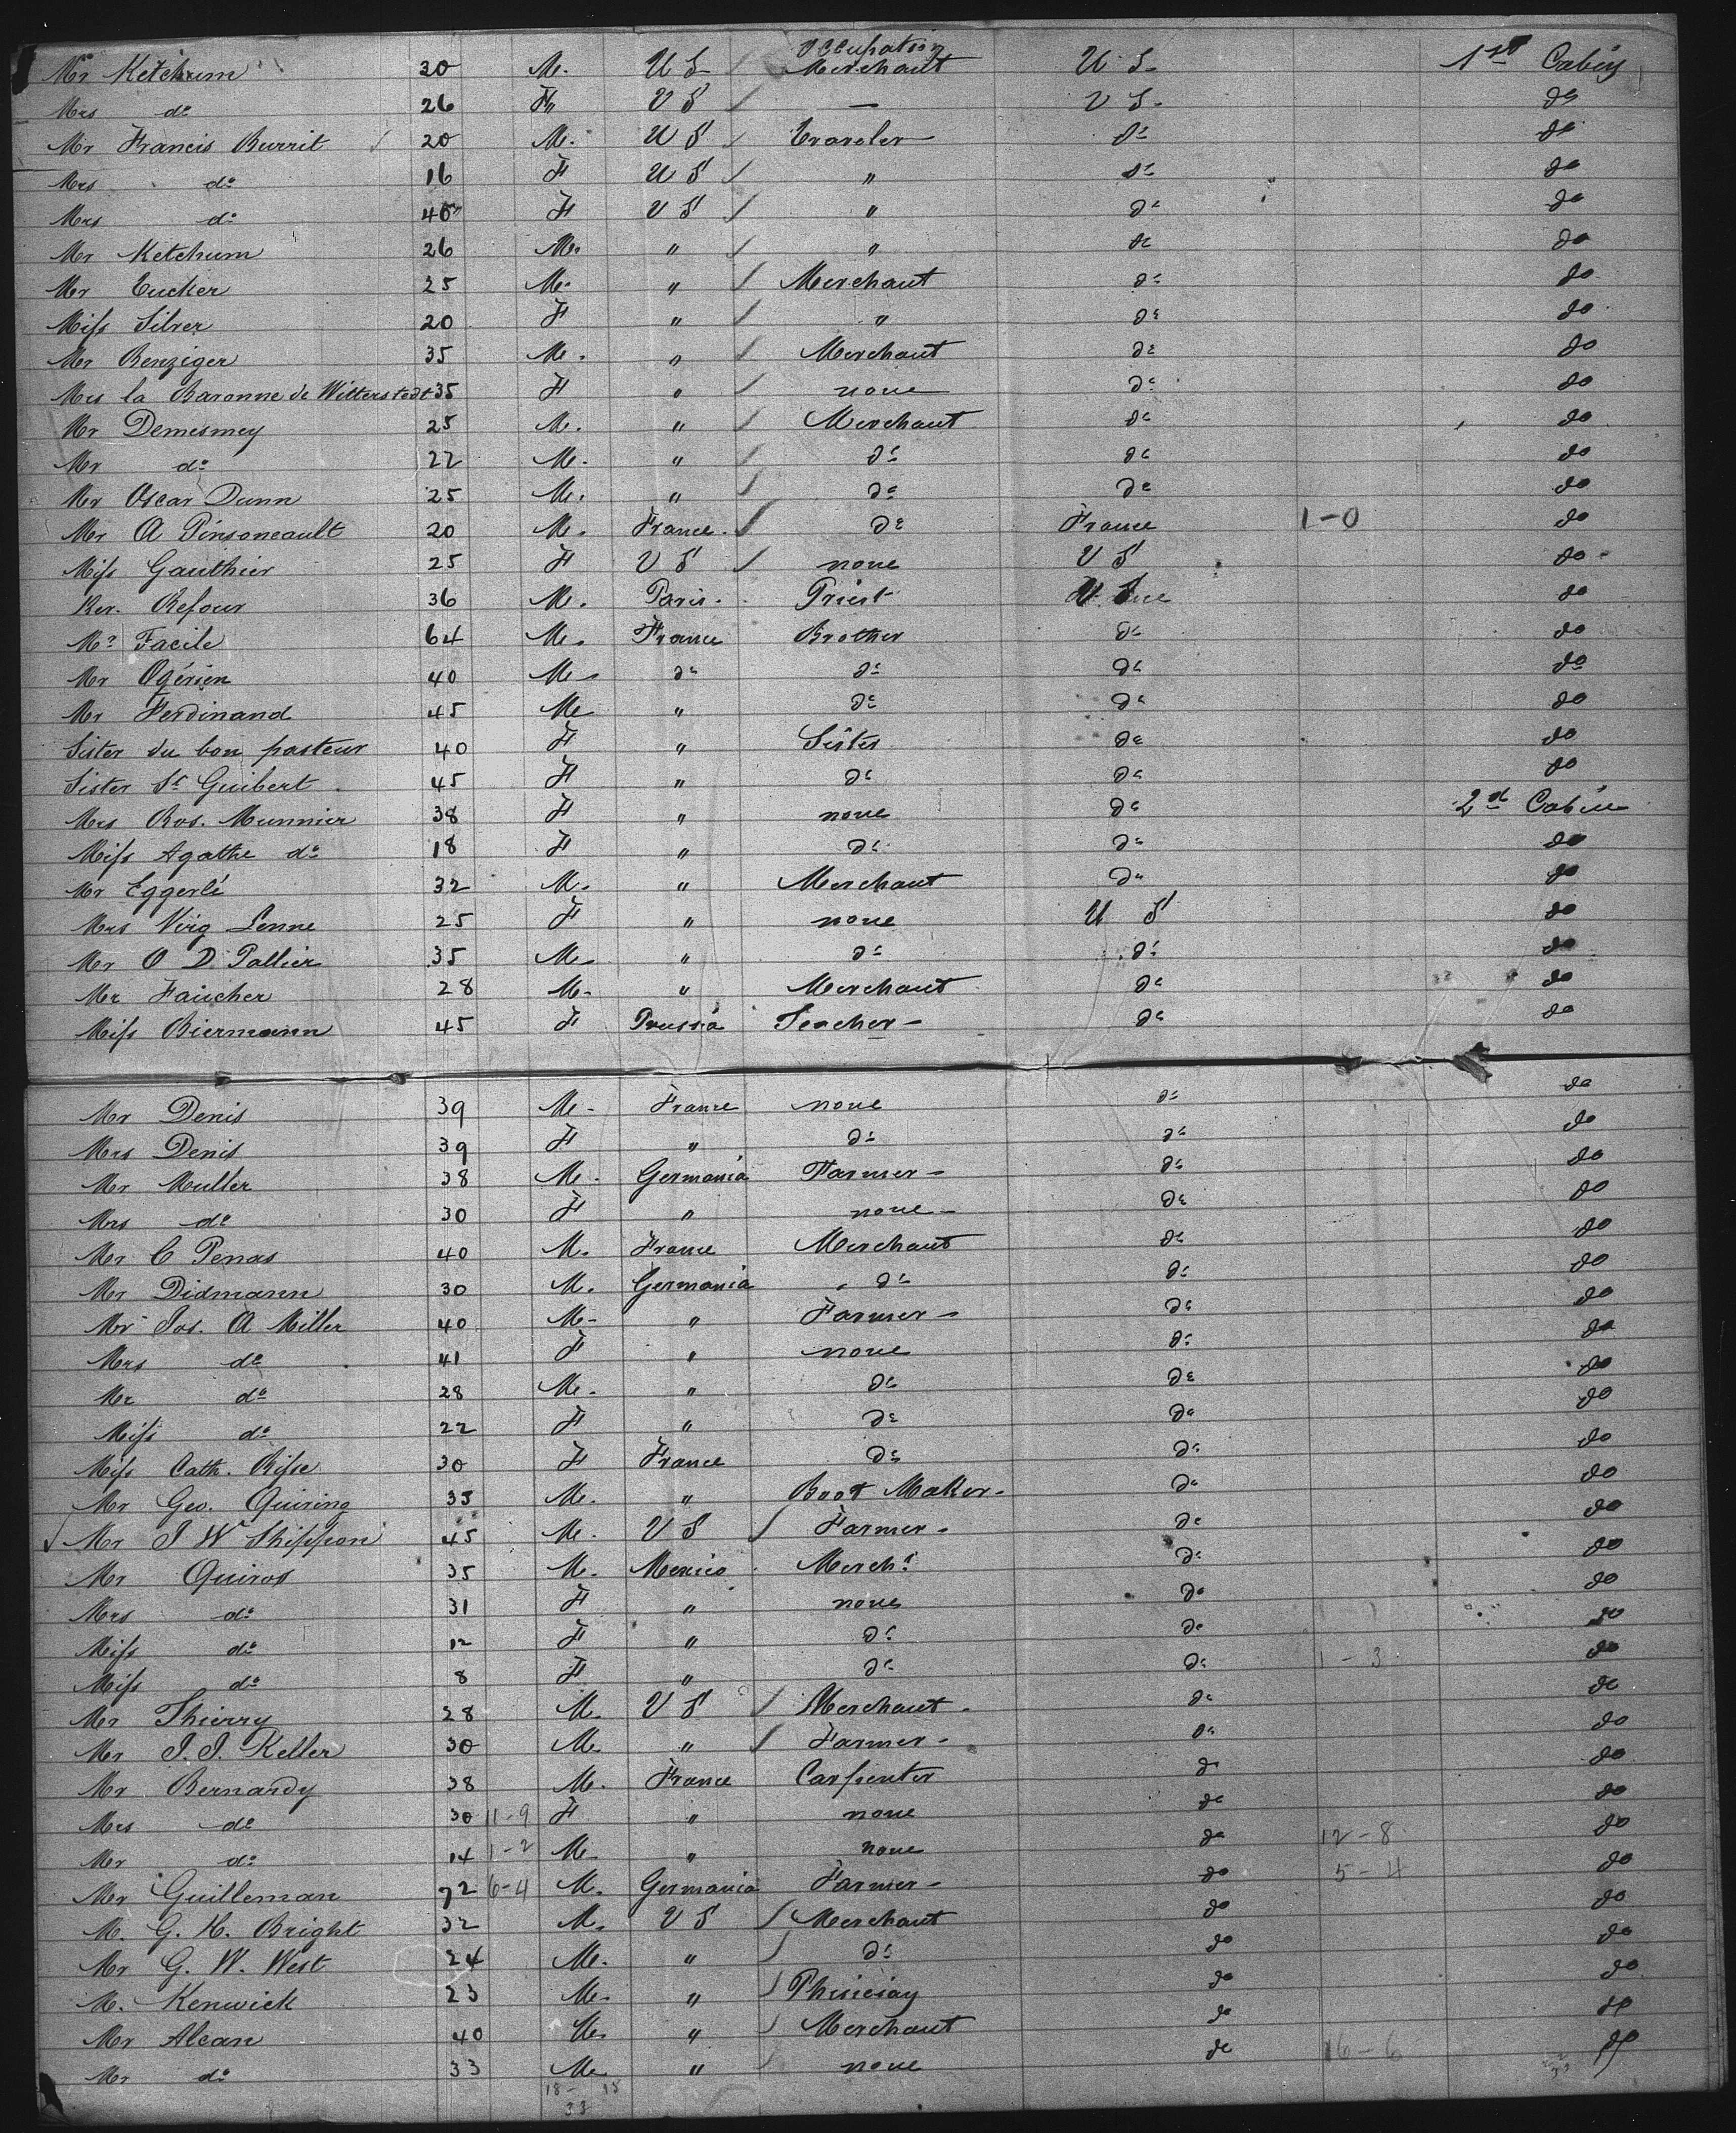 Occupation
Mr Ketchum 30 M. U S / Merchant U. S. 1st Cabin
Mrs do 26 F " U S / — U S. do
Mr Francis Burrit 20 M. U S / Traveler do do
Mrs do 16 F U S / " do do
Mrs do 40 F U S / " do do
Mr Ketchum 26 M. " / " do do
Mr Tucker 25 M. " / Merchant do do
Miss Silver 20 F " / " do do
Mr Benziger 35 M. " / Merchant do do
Mrs la Baronne de Witterstedt 35 F " / none do do
Mr Demesmey 25 M. " / Merchant do do
Mr do 22 M. " / do do do
Mr Oscar Dunn 25 M. " / do do do
Mr A Pinsoneault 20 M. France. / do France 1-0 do
Miss Gauthier 25 F U S / none U S do
Rev. Refour 36 M. Paris. Priest do
Mr Facile 64 M. France Brother do do
Mr Ogérien 40 M do do do do
Mr Ferdinand 45 M " do do do
Sister du bon pasteur 40 F " Sister do do
Sister St Guibert 45 F " do do do
Mrs Ros. Munnier 38 F " none do 2d Cabin
Miss Agathe do 18 F " do do do
Mr Eggerlé 32 M. " Merchant do do
Mrs Virg Lenne 25 F " none U S do
Mr O D. Pallier 35 M. " do do do
Mr Faucher 28 M. " Merchant do do
Miss Biermann 45 F Prussia Teacher - do do
Mr Denis 39 M - France none do do
Mrs Denis 39 F " do do do
Mr Muller 38 M. Germania Farmer - do do
Mrs do 30 F " none - do do
Mr C Penas 40 M. France Merchant do do
Mr Didmann 30 M. Germania do do do
Mr Jos. A Miller 40 M - " Farmer - do do
Mrs do 41 F " none do do
Mr do 28 M. " do do do
Miss do 22 F " do do do
Miss Cath. Risse 30 F France do do do
Mr Geo. Quiring 35 M. " Boot Maker - do do
Mr J W Shippon 45 M. U S / Farmer - do do
Mr Quiros 35 M. Mexico Merch.t do do
Mrs do 31 F " none do do
Miss do 12 F " do do do
Miss do 8 F " do do 1 - 3 do
Mr Thierry 28 M. U S / Merchant - do do
Mr J. J. Keller 30 M. " / Farmer - do do
Mr Bernardy 38 M. France Carpenter do do
Mrs do 30 11-9 F " none do do
Mr do 14 1-2 M. " none do 12-8 do
Mr Guilleman 72 6-4 M. Germania Farmer - do 5-4 do
M. G. H. Bright 32 M. U S / Merchant do do
Mr G. W. West 24 M. " / do do do
M. Kenwick 23 M. " / Phisician do do
Mr Alcan 40 M. " / Merchant do do
Mr do 33 M. " / none do 16-6 do
18 - 15
33